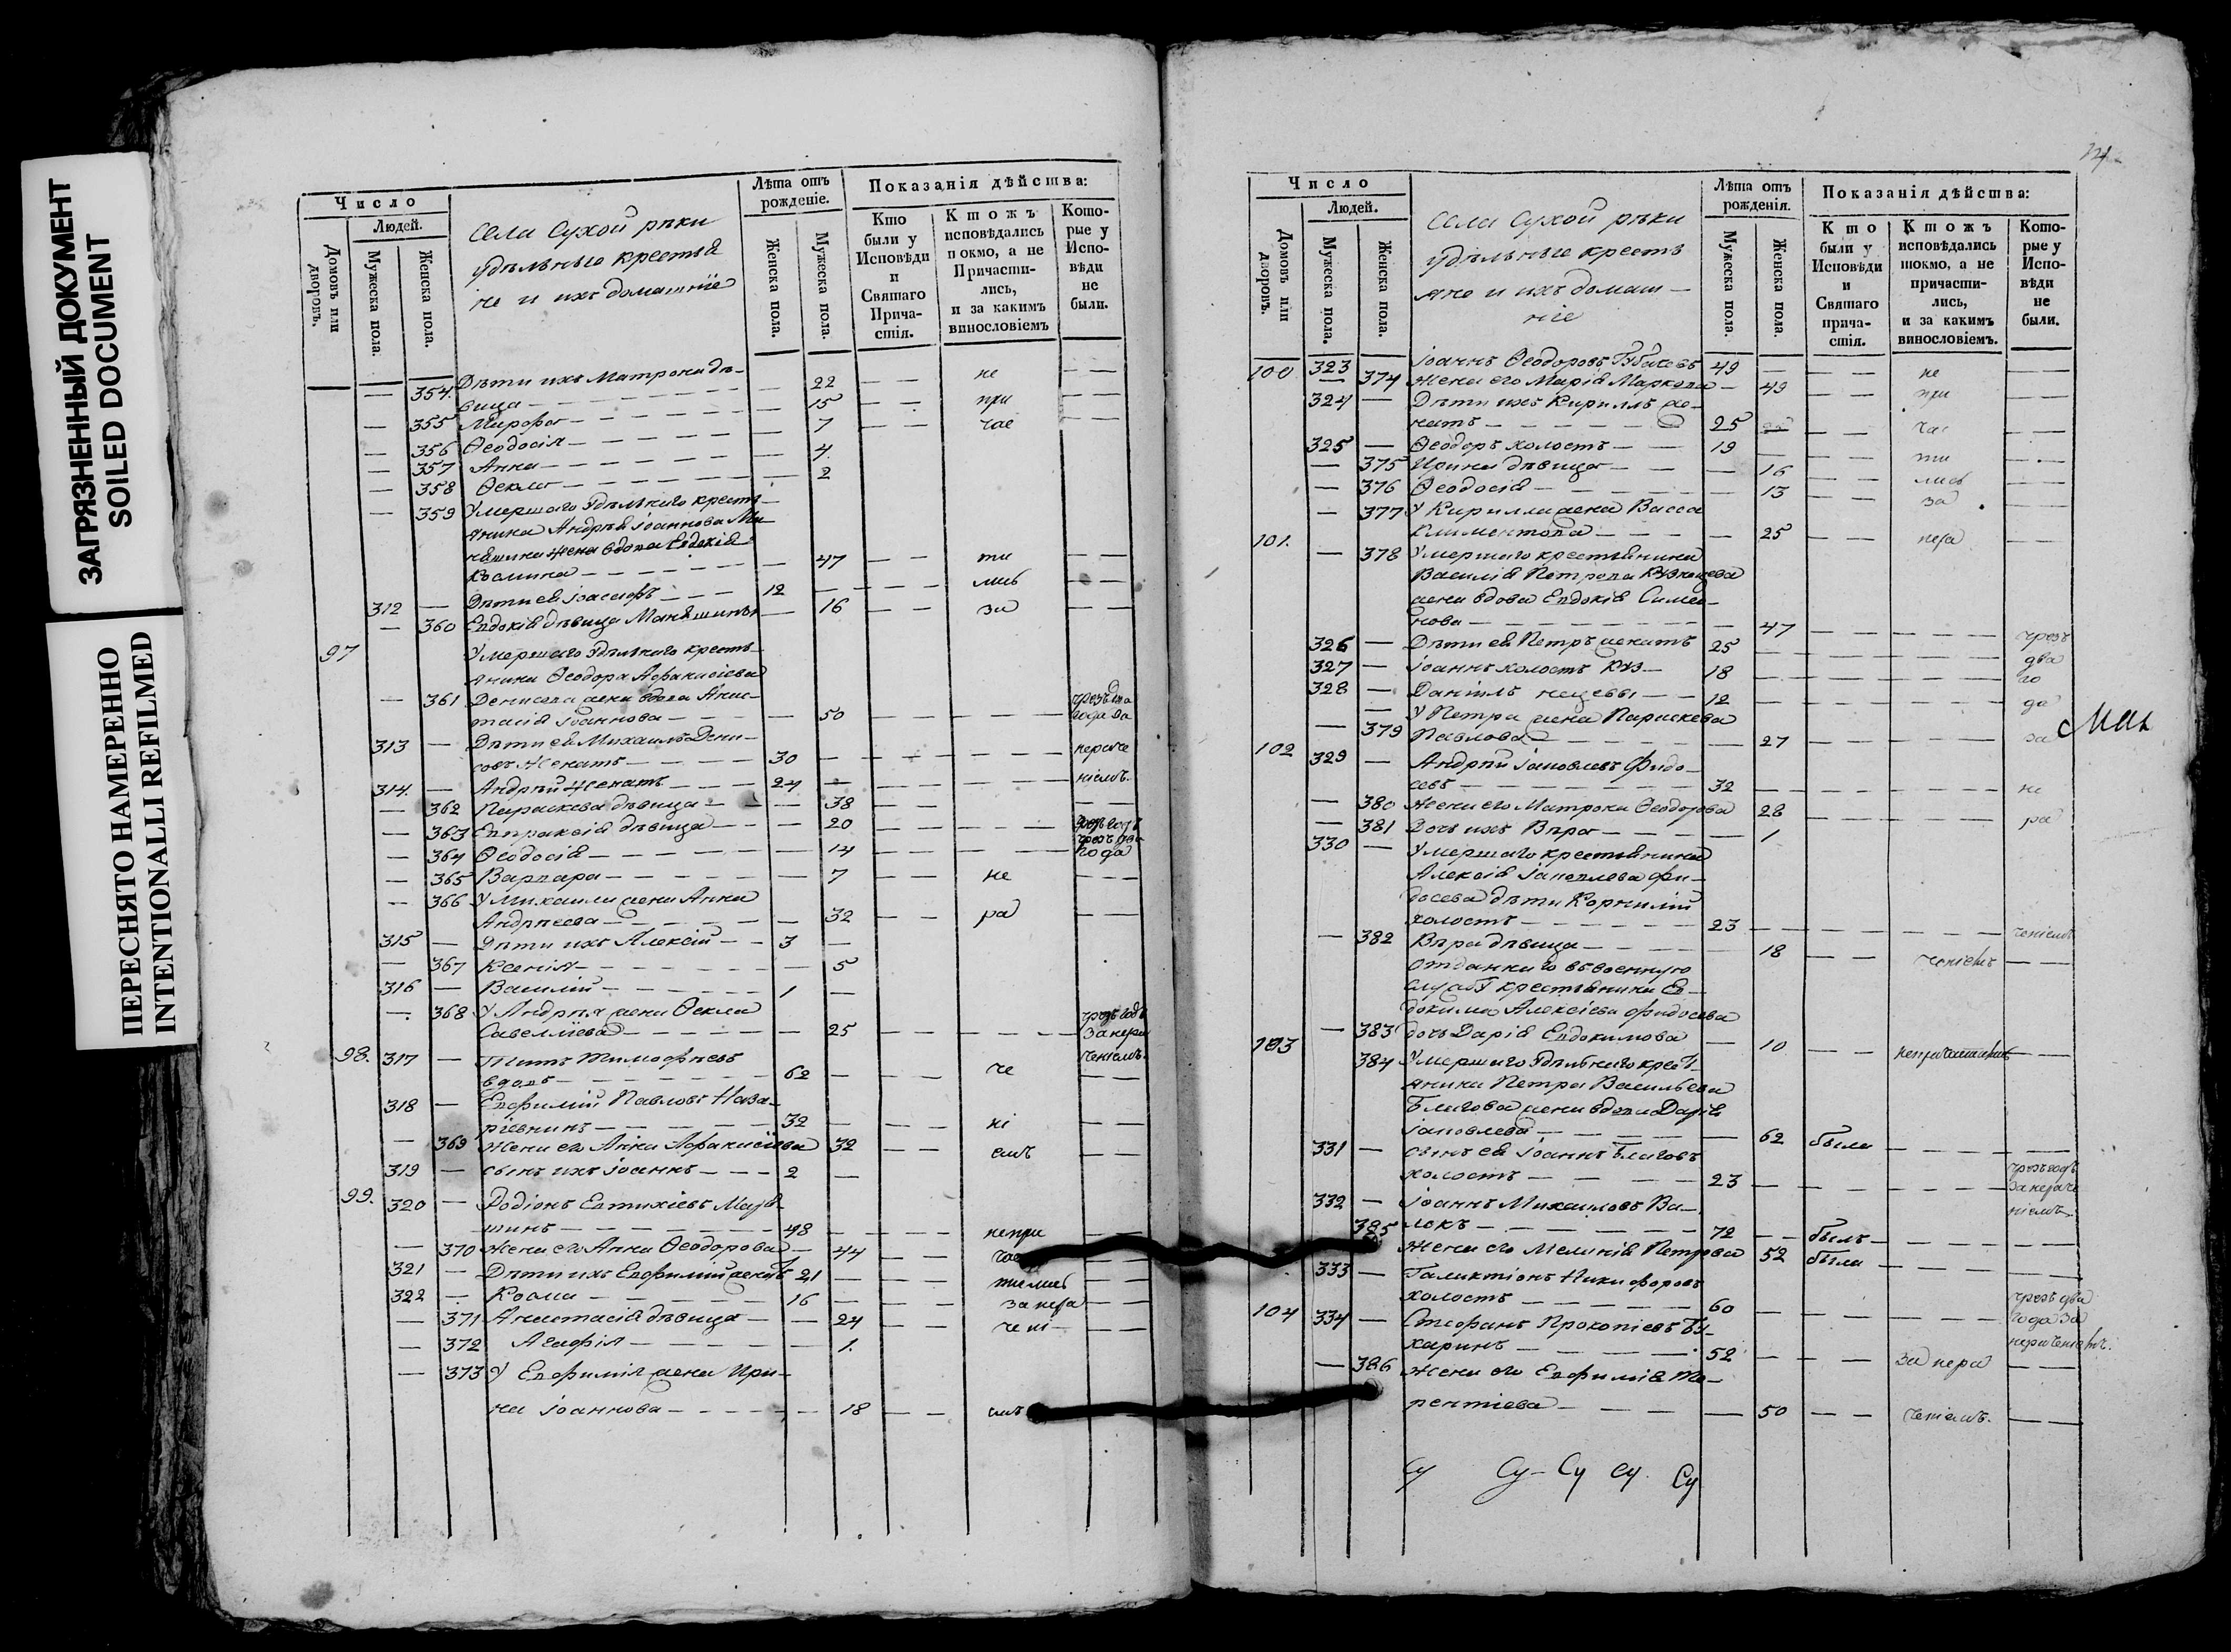 ЗАГРЯЗНЕННЫЙ ДОКУМЕНТ
SOILED DOCUMENT
ПЕРЕСНЯТО НАМЕРЕННО
INTENTIONALLI REFILMED
Число
Людей.
Домовъ или дворовъ.
Мужеска пола.
Женска пола.
Села Сухой рѣки
удѣльные крестья
не и ихъ домашніе
Лѣта отъ рожденіе.
Женска пола.
Мужеска пола.
Показанія дѣйства:
Кто были у Исповѣди и Святаго Прича-стія.
Ктожъ исповѣдались покмо, а не Причасти-лись, и за какимъ винословіемъ
Кото-рые у Испо-вѣди не были.
— 354. Дѣти ихъ Матрона дѣ-
вица — 22 — — не — —
— 355 Мирофа — 15 — — при — —
— 356 Ѳеодосія — 7 — — час — —
— 357 Анна — 4
— 358 Ѳекла — 2
— 359 Умершаго Удѣльнаго кресть-
янина Андрея Іоаннова Ма-
няшина жена вдова Евдокія
Козмина — 47 — ти — —
312 — Дѣти ея Іоасафъ — 12 — — лись — —
— 360 Евдокія дѣвица Маняшины — 16 — — за — —
97 Умершаго Удѣльнаго кресть-
янина Ѳеодора Аѳанасіева
— 361 Денисова жена вдова Анас-
тасія Іоаннова — 50 — — чрезъ два года за
313 — Дѣти ея Михаилъ Дени-
совъ женатъ — 30 — нераче
314. — Андрей женатъ — 24 — ніемъ.
— 362 Параскева дѣвица — 38 — —
— 363 Евпраксія дѣвица — 20 — — чрезъ годъ
— 364 Ѳеодосія — 14 — — чрезъ два года
— 365 Варвара — 7 — — не — —
— 366 У Михаила жена Анна
Андреева — 32 — — ра — —
315 — Дѣти ихъ Алексій — 3 —
— 367 Ксенія — 5
316 — Василій — 1 —
— 368 У Андрея жена Ѳекла
Савелліева — 25 — — чрезъ годъ за нера
98. 317 — Титъ Тимоѳеевъ ченіемъ.
вдовъ — 62 — — че — —
318 — Евфимій Павловъ Наза-
ріевнинъ — 32 — — ні — —
— 369 Жена его Анна Аѳанасіева 32 — — емъ — —
319 — сынъ ихъ Іоаннъ — 2 —
99. 320 — Родіонъ Евтихіевъ
шинъ — 48 — — непри — —
— 370 Жена его Анна Ѳеодорова — 44 — — час — —
321 — Дѣти ихъ Евфимій женатъ 21 — — тились — —
322 — Козма — 16 — — за нера — —
— 371 Анастасія дѣвица — 24 — — чені — —
— 372 Агафія — 1.
— 373 У Евфимія жена Ири-
на Іоаннова — 18 — — емъ
Число
Людей.
Домовъ или дворовъ.
Мужеска пола.
Женска пола.
Села Сухой рѣки
удѣльные кресть
яне и ихъ домаш —
ніе
Лѣта отъ рожденія.
Мужеска пола.
Женска пола
Показанія дѣйства:
Кто были у Исповѣди и Святаго прича-стія.
Ктожъ исповѣдались токмо, а не причасти-лись, и за какимъ винословіемъ.
Кото-рые у Испо-вѣди не были.
100 323 Іоаннъ Ѳеодоровъ 49 — не —
— 374 Жена его Марія Маркова — 49 — — при —
324 — Дѣти ихъ Кириллъ же-
натъ — 25 — — час —
325 — Ѳеодоръ холостъ — 19 — — ти —
— 375 Ирина дѣвица — 16 — — лись —
— 376 Ѳеодосія — 13 — — за —
— 377 У Кирилла жена Васса
Климентова — 25 — — нера —
101. — 378 Умершаго крестьянина
Василія Петрова Кузнецова
жена вдова Евдокія Симео-
нова — 47
326 — Дѣти ея Петръ женатъ 25 — — чрезъ
327 — Іоаннъ холостъ Куз — 18 — — два
328 — Даніилъ нецовы — 12 — — го
У Петра жена Параскева да
— 379 Павлова — 27 — — за
102 329 — Андрей Іаковлевъ Фидо-
сѣевъ — 32 — — не
— 380 Жена его Матрона Ѳеодорова 28 — — ра
— 381 Дочь ихъ Вѣра — 1
330 — Умершаго крестьянина
Алексія Іаковлева Фи-
досева дѣти Корнилій
холостъ — 23 — — ченіемъ
— 382 Вѣра дѣвица — 18 — — ченіемъ — —
Отданнаго въ военную
службу крестьянина Ев-
докима Алексіева Фидосева
— 383 дочь Дарія Евдокимова — 10 — —
103 384 Умершаго Удѣльнаго крест-
янина Петра Васильева
Блигова жена вдова Дарія
Іаковлева — 62 была — —
331 — сынъ ея Іоаннъ Блиговъ
холостъ — 23 — — чрезъ годъ за нераче
332 — Іоаннъ Михаиловъ Ва- ніемъ.
локъ — 72 — былъ — —
385 Жена его Меланія Петрова 52 была — —
333 — Галактіонъ Никифоровъ
холостъ — 60 — — чрезъ два
104 334 — Стефанъ Прокопіевъ Бу- года за
харинъ — 52 — — нераченіемъ.
— 386 Жена его Евфимія Те- за нера —
рентіева — 50 — — ченіемъ. —
Мак
Су Су- Су Су. Су